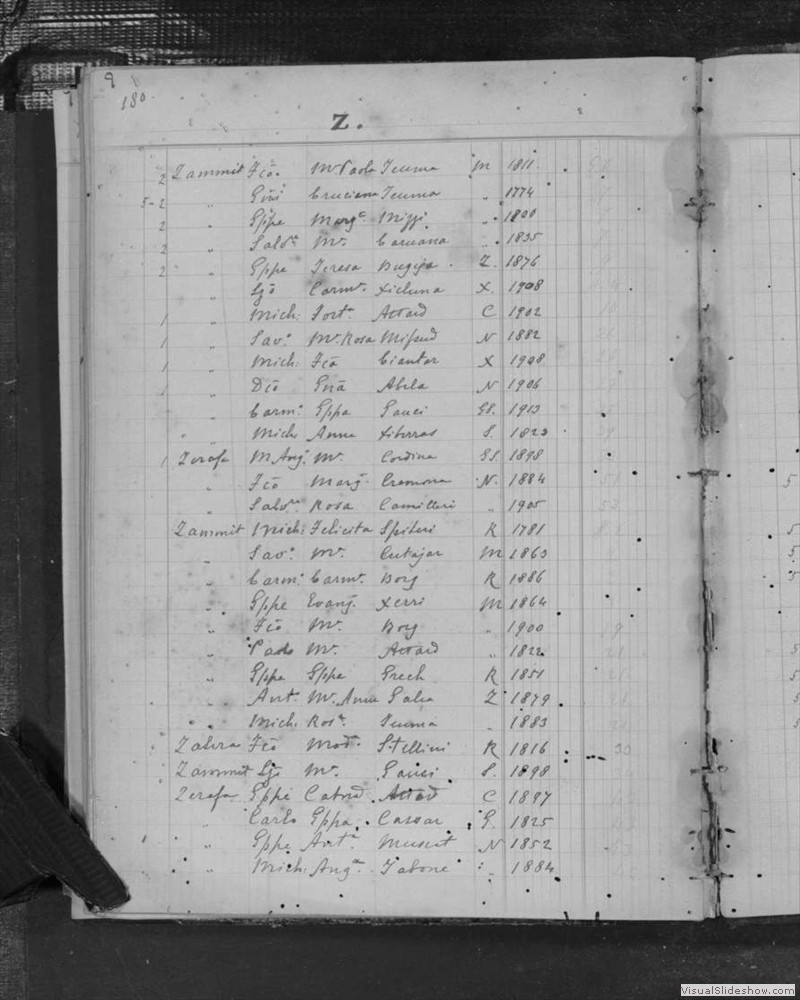 9
180.
Z.
2 Zammit Fcō. Mª Paola Teuma M 1811
5-2 " Giñi Cruciana Teuma " 1774
2 " Gppe Margª Mizzi " 1800
2 " Salvre Mª. Caruana " 1835
2 " Gppe Teresa Bugeja . Z. 1876
" Lgō Carmª. Xicluna X. 1908
1 " Mich: Fortª Attard C 1902
1 " Savº Mª Rosa Mifsud N 1882
1 " Mich: Fcā Ciantar X 1908
1 " Dcō Gnā Abela N 1906
" Carmº Gppa Gauci GS. 1913
" Mich. Anna Xiberras S. 1823
1 Zerafa M. Ang. Mª. Cordina GS 1898
" Fcō Marg. Cremona N. 1884
" Salvre Rosa Camilleri " 1905
Zammit Mich: Felicita Spiteri R 1781
" Savº Mª. Cutajar M 1863
" Carmº Carmª. Borg R 1886
" Gppe Evang. Xerri M 1864
" Fcō Mª. Borg " 1900
" Paolo Mª. Attard " 1822
" Gppe Gppa Grech R 1851
" Ant. Mª. Anna Galea Z 1879
" Mich. Rosª. Teuma " 1883
Zahra Fcō Madª. Stellini R 1816
Zammit Lgō Mª. Gauci S. 1898
Zerafa Gppe Catnā Attard C 1897
" Carlo Gppa Cassar G. 1825
" Gppe Antª Muscat N 1852
" Mich: Angª Tabone " 1884
VisualSlideshow.com